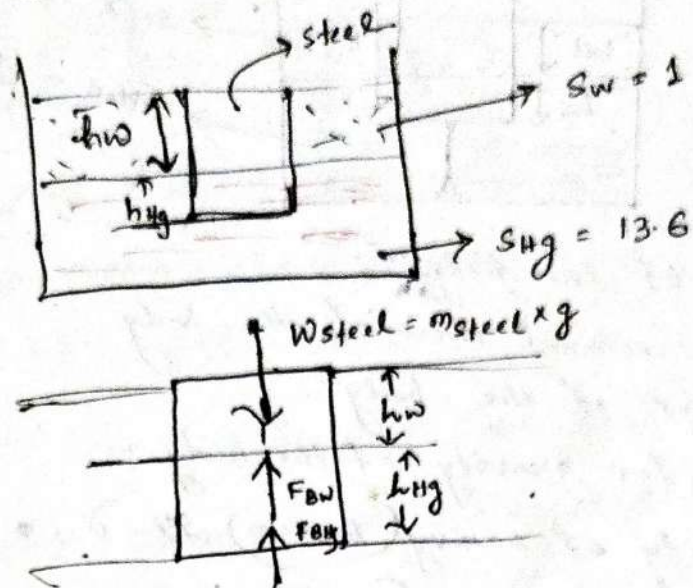 steel
hw
Sw = 1
hHg
SHg = 13.6
Wsteel = msteel × g
hw
FBW
hHg
FBHg